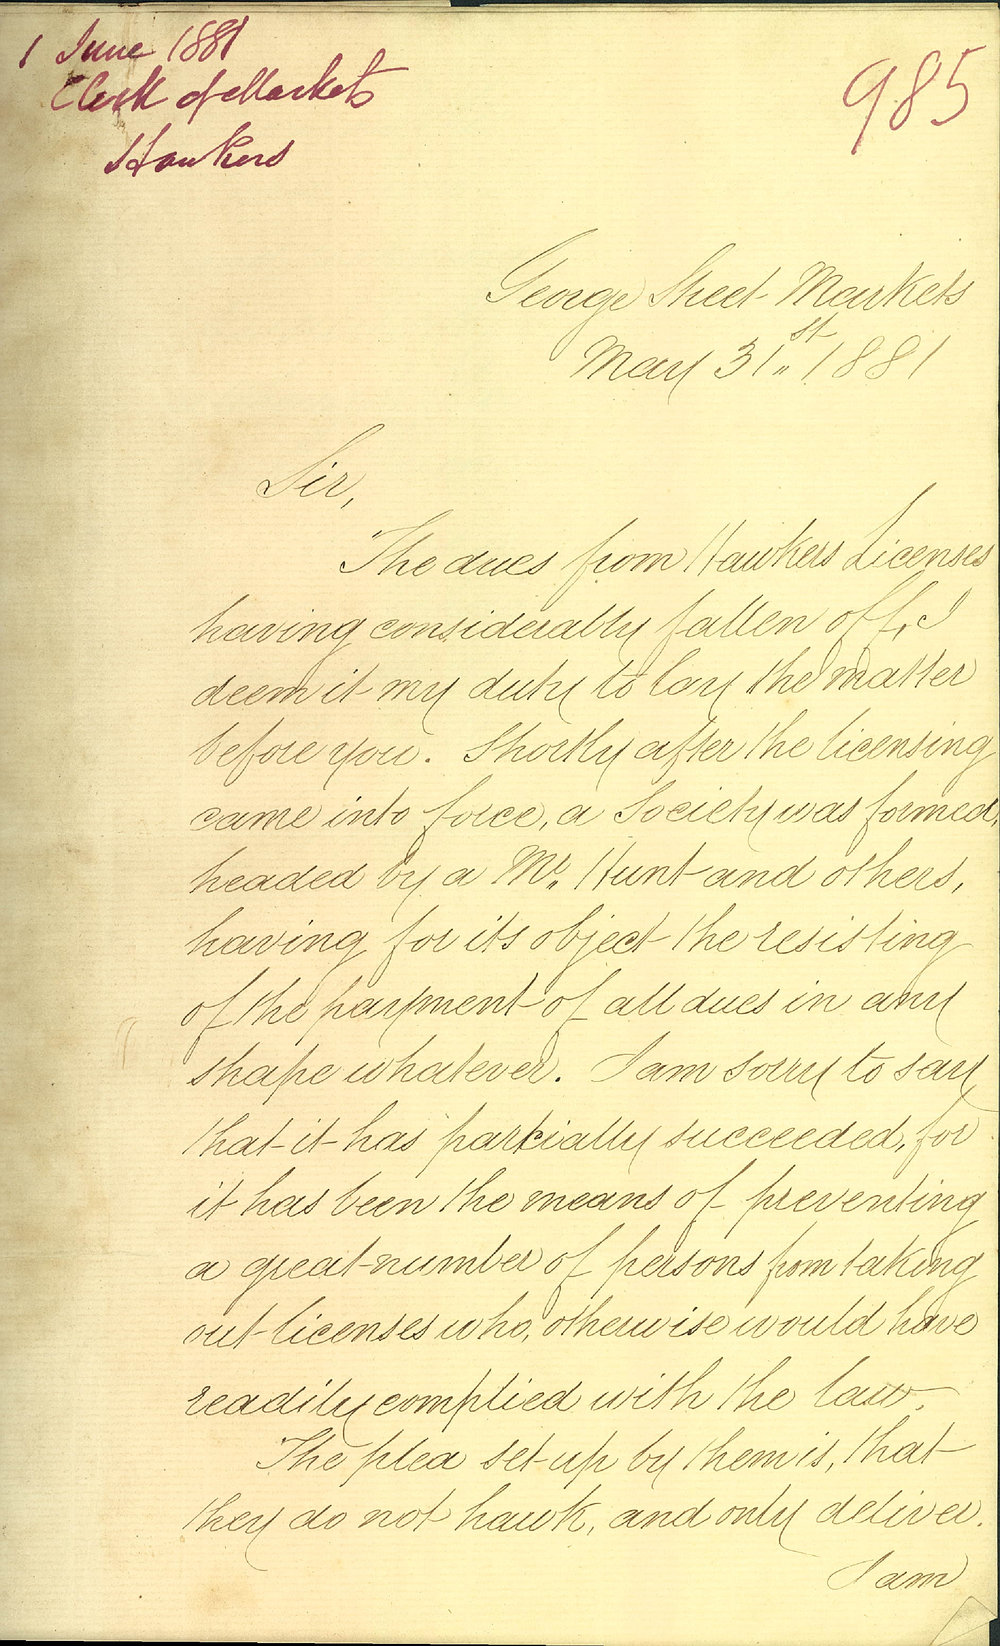 1 June 1881
Clerk of Markets
Hawkers
985
George Street Markets
May 31st 1881
Sir,
The dues from Hawkers Licenses
having considerably fallen off, I
deem it my duty to lay the matter
before you. Shortly after the licensing
came into force, a Society was formed,
headed by a Mr. Hunt and others,
having for its object the resisting
of the payment of all dues in any
shape whatever. I am sorry to say
that it has partially succeeded, for
it has been the means of preventing
a great number of persons from taking
out licenses who, otherwise would have
readily complied with the law.
The plea set up by them is, that
they do not hawk, and only deliver.
I am